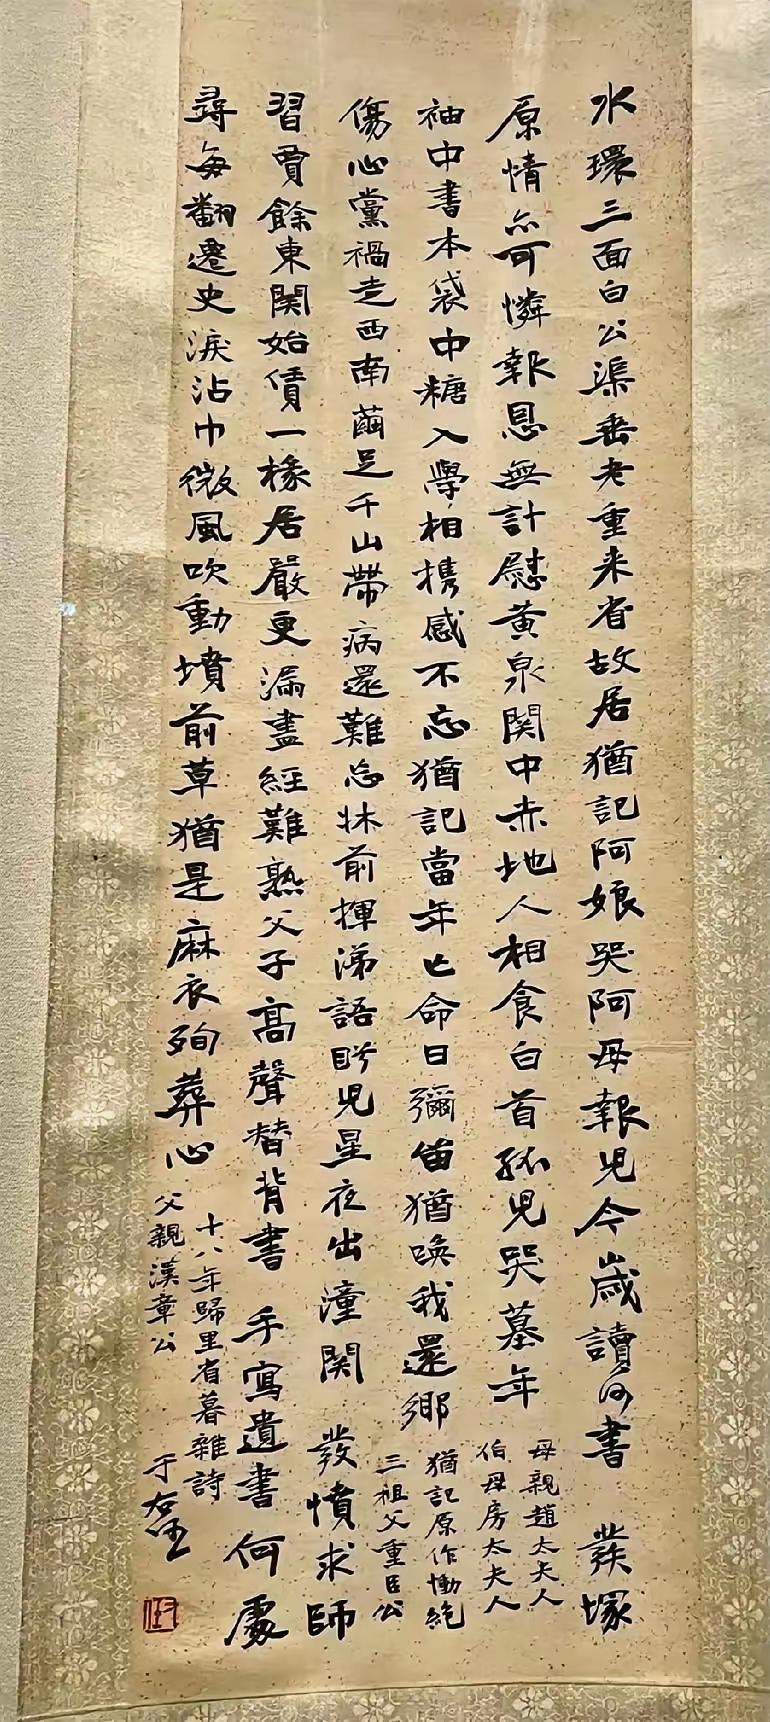 水環三面白公渠垂老重來省故居猶記阿娘哭阿母報兒今歲讀何書 發塚
原情亦可憐報恩無計慰黃泉關中赤地人相食白首孤兒哭墓年
母親趙太夫人
伯母房太夫人
袖中書本袋中糖入學相携感不忘猶記當年亡命日彌留猶喚我還鄉
猶記原作慟絕
三祖父重臣公
傷心黨禍走西南繭足千山帶病還難忘牀前揮涕語盼兒星夜出潼關 發憤求師
習賈餘東關始賃一椽居嚴更漏盡經難熟父子高聲替背書 手寫遺書何處
尋每翻遷史淚沾巾微風吹動墳前草猶是麻衣殉葬心
十八年歸里省墓雜詩
父親漢章公
于右任